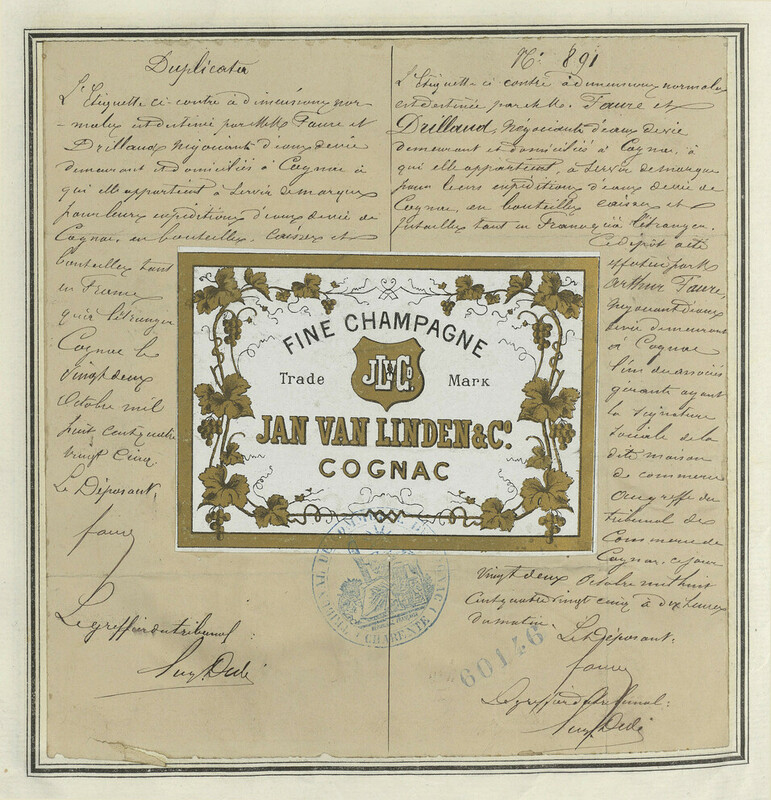 Duplicata
L'Etiquette ci-contre à dimensions nor-
-males est destinée par MM. Faure et
Drillaud, Négociants d'eaux de vie
demeurant et domiciliés à Cognac à
qui elle appartient à servir de marque
pour leurs expéditions d'eaux de vie de
Cognac, en bouteilles, caisses et
bouteilles tant
en France
qu'à l'étranger
Cognac le
Vingt deux
Octobre mil
huit cent quatre
vingt cinq
Le Déposant,
Faure
Le greffier du tribunal:
N°: 891
L'Etiquette ci-contre à dimensions normales
est destinée par MM. Faure et
Drillaud, Négociants d'eaux de vie
demeurant et domiciliés à Cognac, à
qui elle appartient, à servir de marque
pour leurs expéditions d'eaux de vie de
Cognac, en bouteilles caisses et
futailles tant en France qu'à l'étranger.
Ce dépôt a été
effectué par M.
Arthur Faure,
Négociant d'eaux
de vie demeurant
à Cognac
l'un des associés
gérants ayant
la signature
sociale de la
dite maison
de commerce
au greffe du
tribunal de
Commerce de
Cognac, ce jour
Vingt deux Octobre mil huit
cent quatre vingt cinq à dix heures
du matin.
Le Déposant:
Faure
Le greffier du tribunal:
FINE CHAMPAGNE
JL&Co.
Trade Mark
JAN VAN LINDEN & Co.
COGNAC
CHARENTE
60146